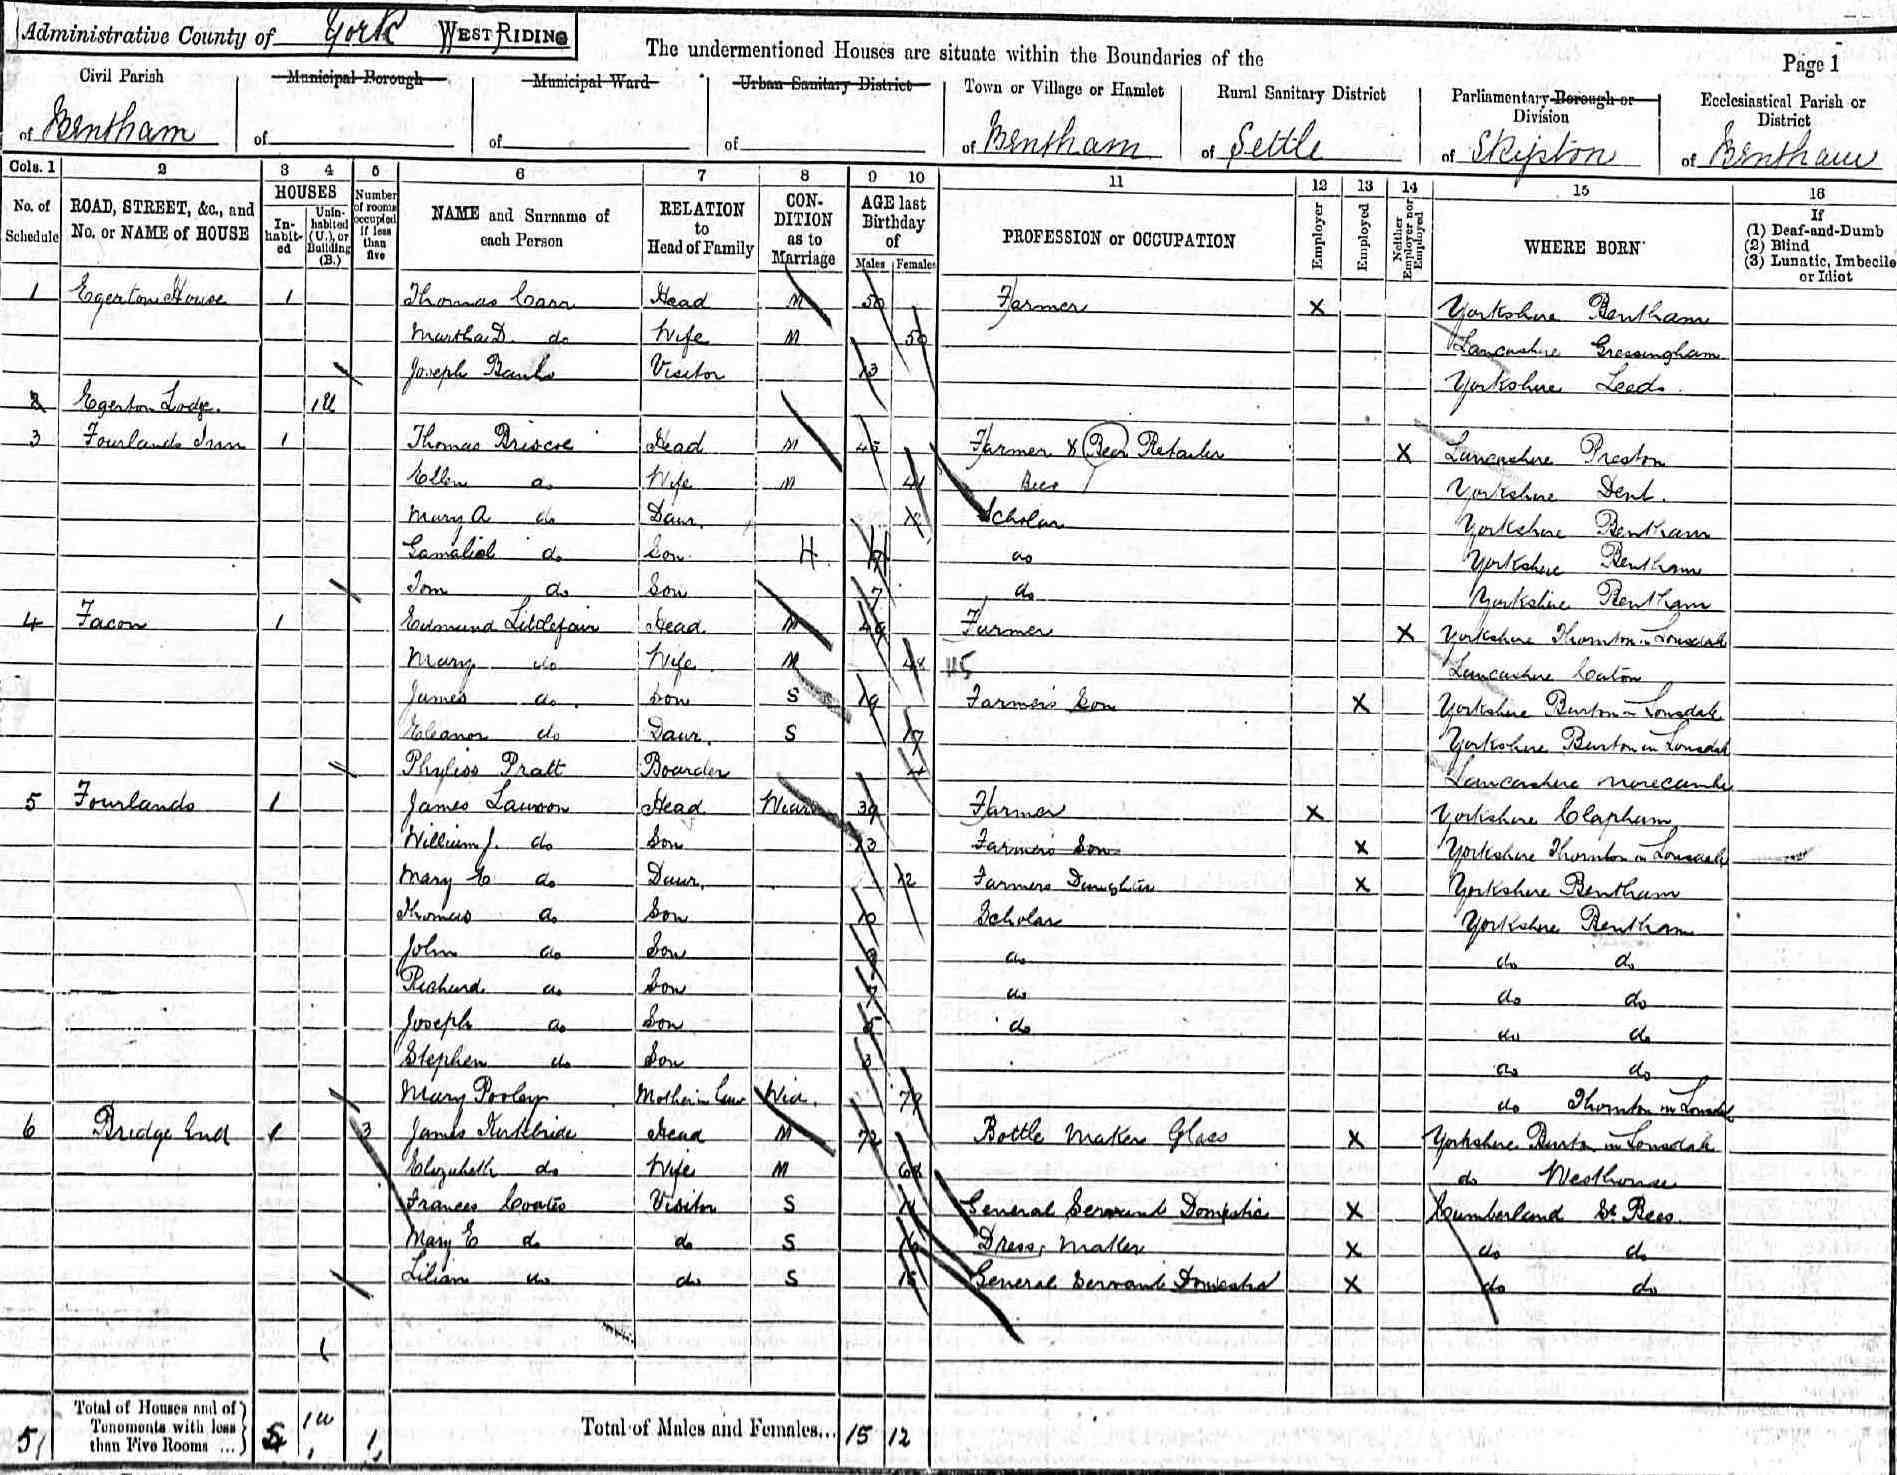 Administrative County of York WEST RIDING
The undermentioned Houses are situate within the Boundaries of the
Page 1
Civil Parish of Bentham
Municipal Borough of
Municipal Ward of
Urban Sanitary District of
Town or Village or Hamlet of Bentham
Rural Sanitary District of Settle
Parliamentary Borough or Division of Skipton
Ecclesiastical Parish or District of Bentham
Cols. 1 2 3 4 5 6 7 8 9 10 11 12 13 14 15 16
No. of Schedule
ROAD, STREET, &c., and No. or NAME of HOUSE
HOUSES
Inhabited
Uninhabited (U.), or Building (B.)
Number of rooms occupied if less than five
NAME and Surname of each Person
RELATION to Head of Family
CONDITION as to Marriage
AGE last Birthday of
Males Females
PROFESSION or OCCUPATION
Employer
Employed
Neither Employer nor Employed
WHERE BORN
If
(1) Deaf-and-Dumb
(2) Blind
(3) Lunatic, Imbecile or Idiot
1 Egerton House 1 Thomas Carr Head M 50 Farmer X Yorkshire Bentham
Martha D. do Wife M 50 Lancashire Gressingham
Joseph Banks Visitor 13 Yorkshire Leeds
2 Egerton Lodge. 1U
3 Fourlands Inn 1 Thomas Briscoe Head M 45 Farmer & Beer Retailer X Lancashire Preston
Ellen do Wife M 41 Beer Yorkshire Dent.
Mary A do Daur. Scholar Yorkshire Bentham
Gamaliel do Son do Yorkshire Bentham
Tom do Son 7 do Yorkshire Bentham
4 Facon 1 Edmund Littlefair Head M 49 Farmer X Yorkshire Thornton in Lonsdale
Mary do Wife M 115 Lancashire Caton
James do. Son S 19 Farmer's Son X Yorkshire Burton in Lonsdale
Eleanor do Daur. S 17 Yorkshire Burton in Lonsdale
Phyliss Pratt Boarder 4 Lancashire Morecambe
5 Fourlands 1 James Lawson Head Widr 39 Farmer X Yorkshire Clapham
William J. do Son 13 Farmers Son X Yorkshire Thornton in Lonsdale
Mary E do Daur. 12 Farmers Daughter X Yorkshire Bentham
Thomas do Son 10 Scholar Yorkshire Bentham
John do Son do do do
Richard do Son 7 do do do
Joseph do Son 5 do do do
Stephen do Son 3 do do
Mary Pooley Mother in law Wid. 79 do Thornton in Lonsdale
6 Bridge End 1 3 James Kirkbride Head M 72 Bottle Maker Glass X Yorkshire Burton in Lonsdale
Elizabeth do Wife M 68 do Westhouse
Frances Coates Visitor S General Servant Domestic X Cumberland St Bees.
Mary E do do S 16 Dress Maker X do do
Lilian do do S 15 General Servant Domestic X do do
5 Total of Houses and of Tenements with less than Five Rooms ... 5 1U 1 Total of Males and Females... 15 12